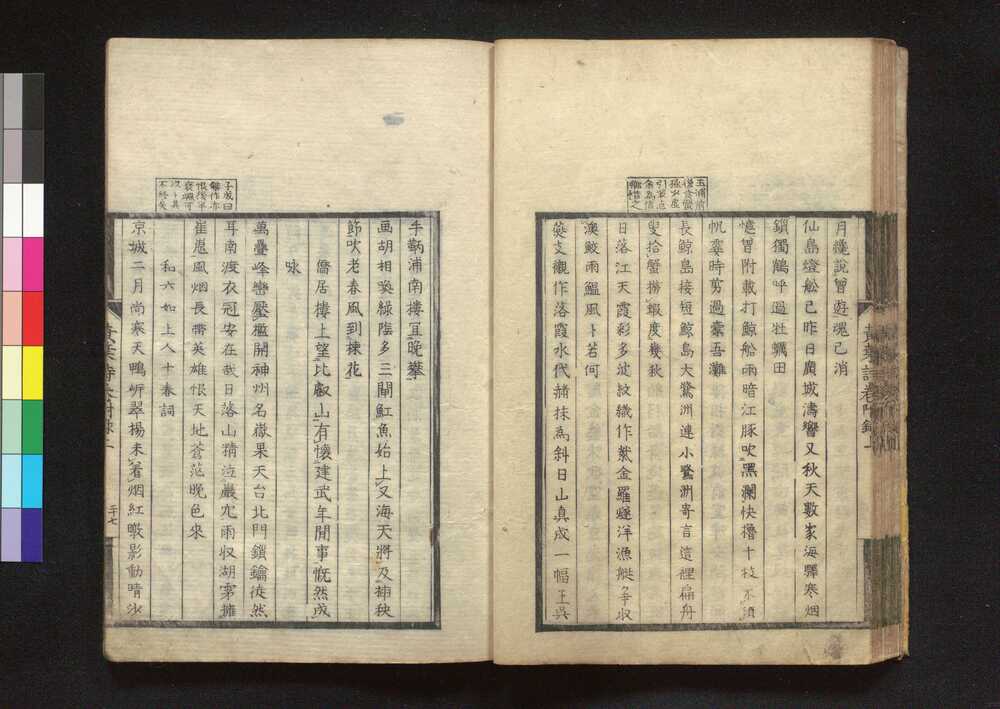 月纔說曽遊魂已消
仙島燈舩已昨日廣城濤響又秋天數家海驛寒烟
鎖獨鶴呼過牡蠣田
憶曽附載打鯨船雨暗江豚吹黑瀾快櫓十枝不須
帆霎時剪過棄吾灘
長鯨島接短鯨島大鷺洲連小鷺洲寄言這裡扁舟
叟拾蟹撈蝦度幾秋
日落江天霞彩多波紋織作紫金羅蜑洋漁艇争収
澳鮫雨鰮風卜若何
茭支巘作落霞水代赭抹為斜日山真成一幅王吴
手鞆浦南樓宜晚攀
画胡相喚綠陰多三閘魟魚始上又海天將及挿秧
節吹老春風到楝花
僑居樓上望比叡山有懐建武年間事慨然成
咏
萬疊峰巒壓檻開神州名嶽果天台北門鎖鑰徒然
耳南渡衣冠安在哉日落山精泣巖穴雨収湖霧擁
崔嵬風烟長帶英雄恨天地蒼茫晚色來
和六如上人十春詞
京城二月尚寒天鴨岍翠楊未着烟紅暾影動晴沙
子成曰
黄葉詩卷附録上